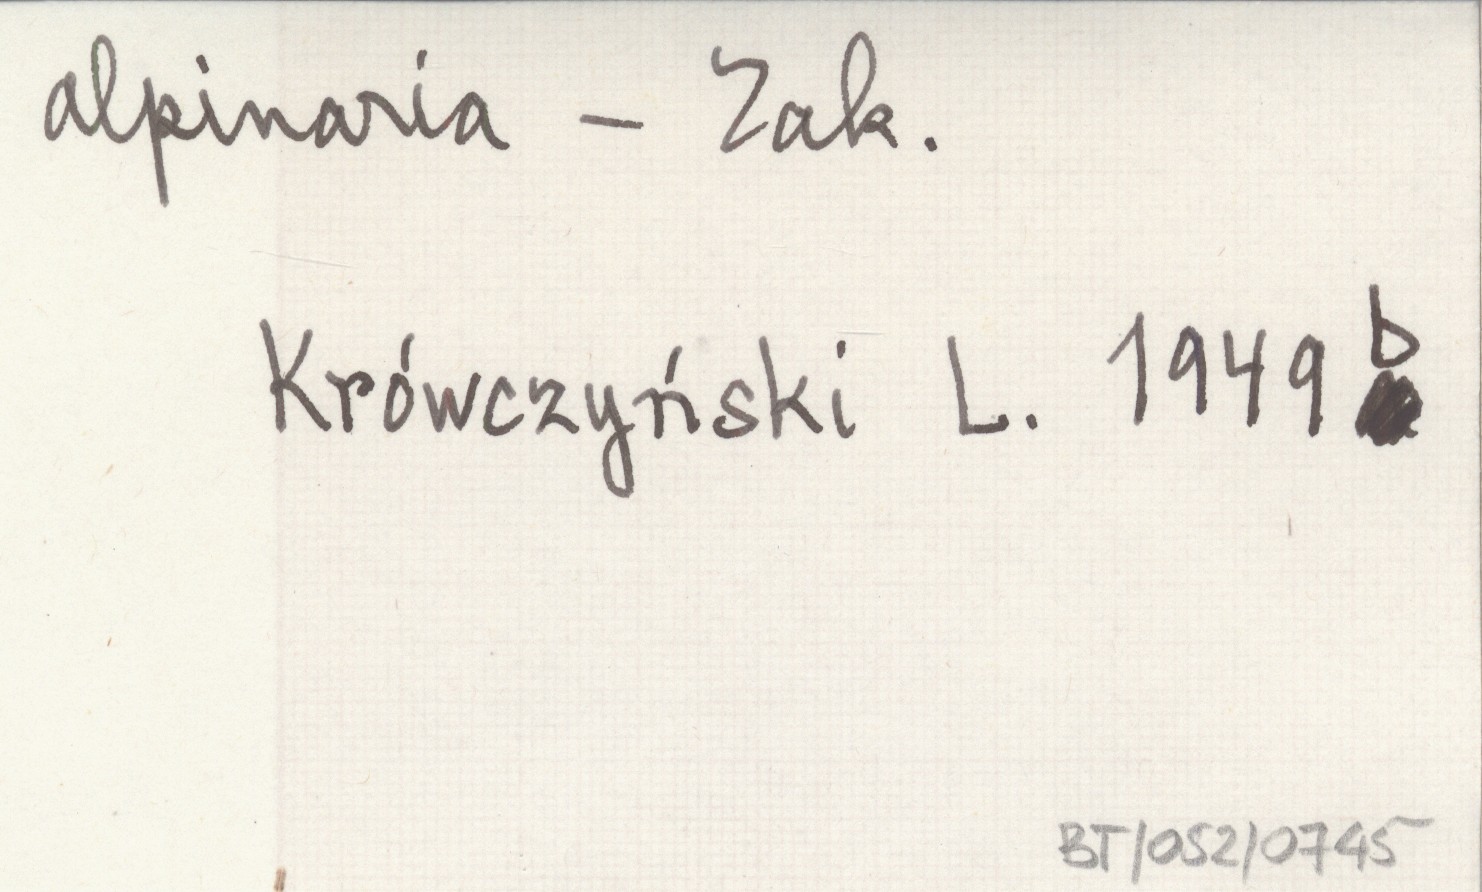 alpinaria - Zak.
Krówczyński L. 1949 b
BT/052/0745